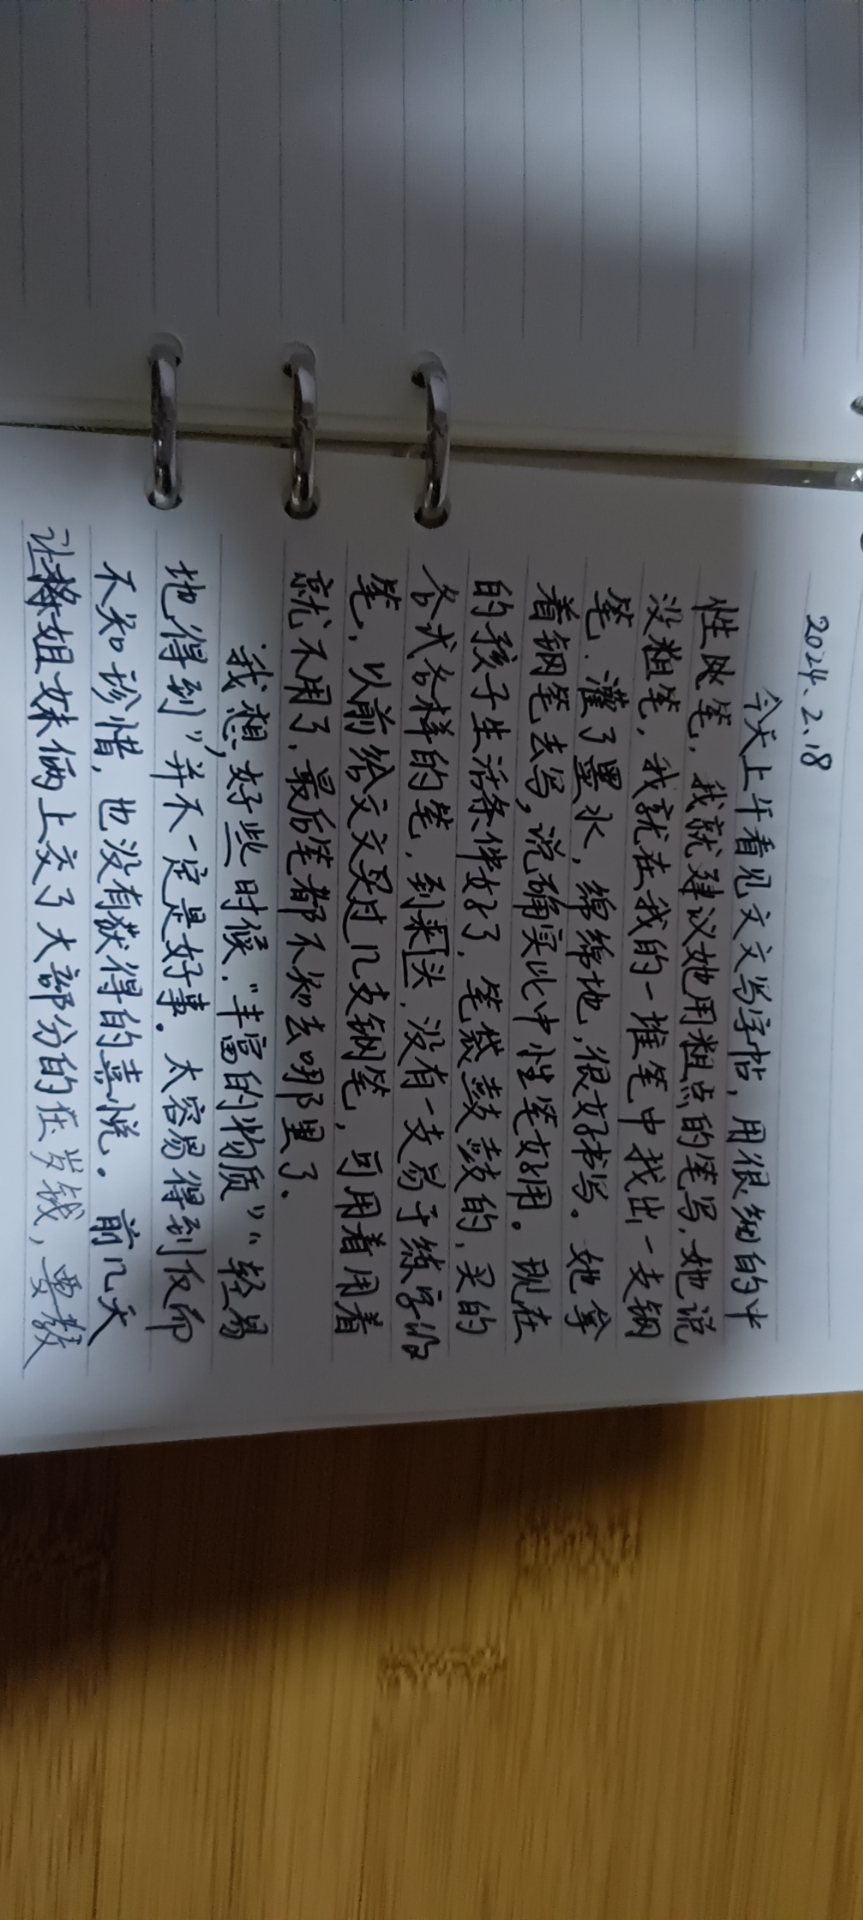 2024.2.18
今天上午看见文文写字帖，用很细的中
性水笔，我就建议她用粗点的笔写，她说
没粗笔，我就在我的一堆笔中找出一支钢
笔，灌了墨水，绵绵地，很好书写。她拿
着钢笔去写，说确实比中性笔好用。现在
的孩子生活条件好了，笔袋鼓鼓的，买的
各式各样的笔，到来头，没有一支易于练字的
笔，以前给文文买过几支钢笔，可用着用着
就不用了，最后笔都不知去哪里了。
我想，好些时候，“丰富的物质”“轻易
地得到”并不一定是好事。太容易得到反而
不知珍惜，也没有获得的喜悦。前几天
让姐妹俩上交了大部分的压岁钱，要数